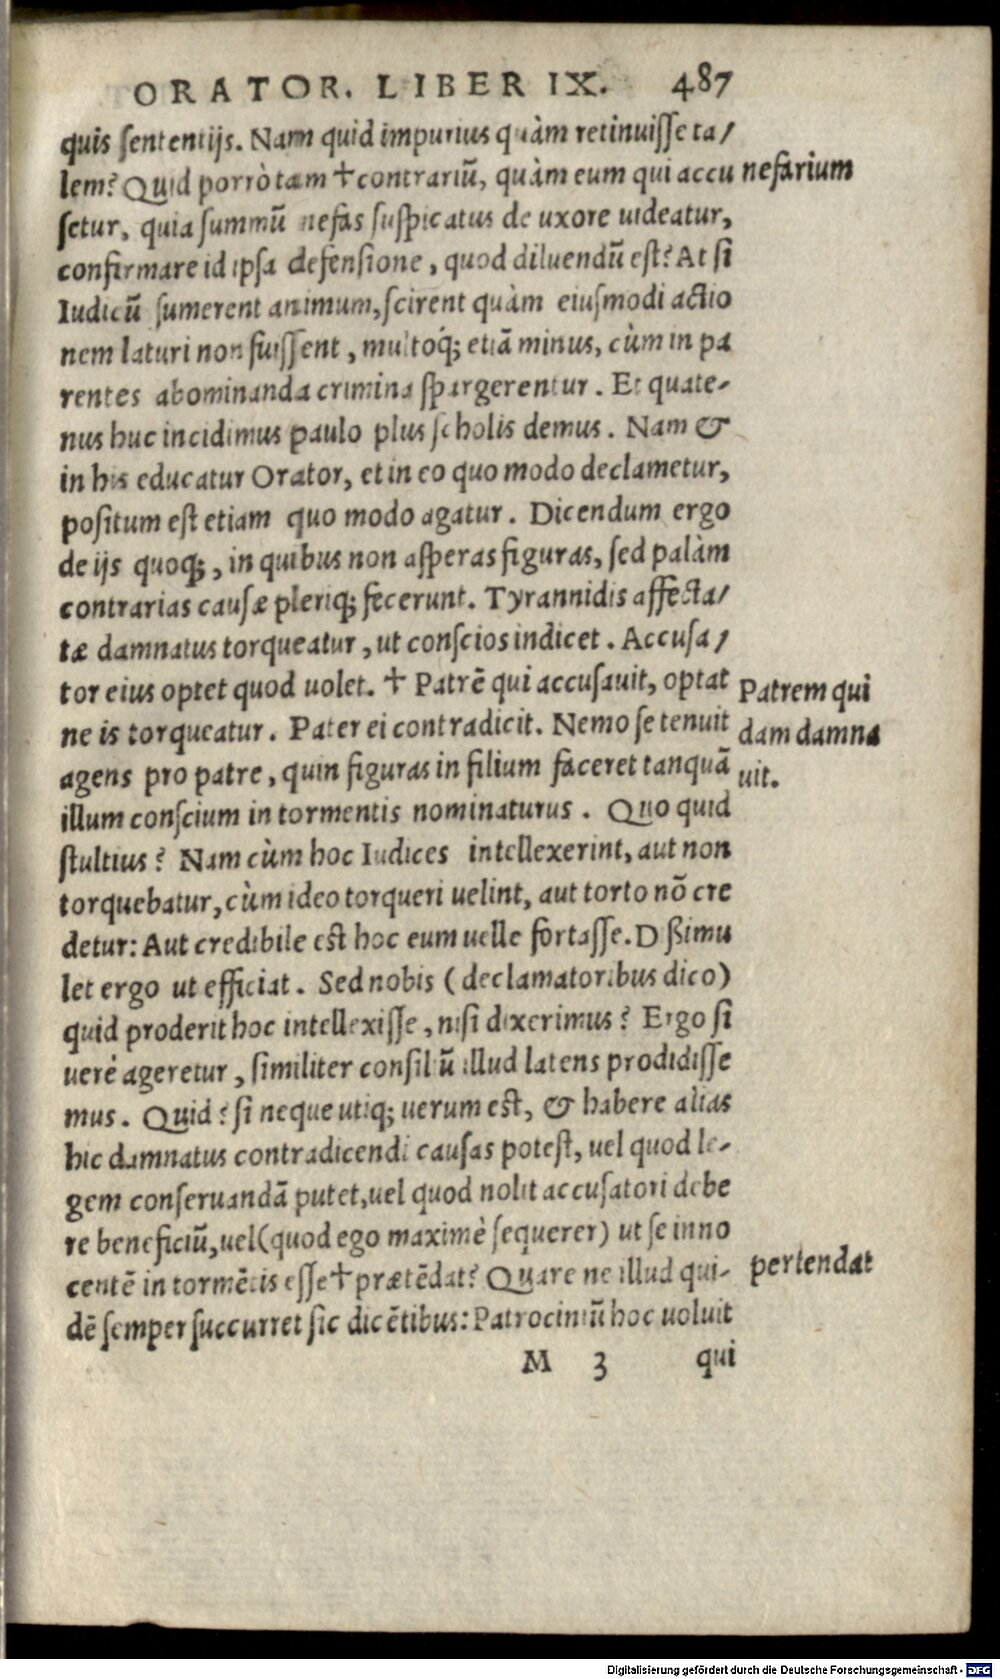 ORATOR. LIBER IX. 487
quis sententijs. Nam quid impurius quàm retinuisse ta/
lem? Quid porrò tam ☩ contrariũ, quàm eum qui accu
nefarium
setur, quia summũ nefas suspicatus de uxore uideatur,
confirmare id ipsa defensione, quod diluendũ est? At si
Iudicũ sumerent animum, scirent quàm eiusmodi actio
nem laturi non fuissent, multoq́; etiã minus, cùm in pa
rentes abominanda crimina spargerentur. Et quate-
nus huc incidimus paulo plus scholis demus. Nam &
in his educatur Orator, et in eo quo modo declametur,
positum est etiam quo modo agatur. Dicendum ergo
de ijs quoq;, in quibus non asperas figuras, sed palàm
contrarias causæ pleriq; fecerunt. Tyrannidis affecta/
tæ damnatus torqueatur, ut conscios indicet. Accusa/
tor eius optet quod uolet. ☩ Patrẽ qui accusauit, optat
Patrem qui
ne is torqueatur. Pater ei contradicit. Nemo se tenuit
dam damna
agens pro patre, quin figuras in filium faceret tanquã
uit.
illum conscium in tormentis nominaturus. Quo quid
stultius? Nam cùm hoc Iudices intellexerint, aut non
torquebatur, cùm ideo torqueri uelint, aut torto nõ cre
detur: Aut credibile est hoc eum uelle fortasse. Dßimu
let ergo ut efficiat. Sed nobis (declamatoribus dico)
quid proderit hoc intellexisse, nisi dixerimus? Ergo si
uerè ageretur, similiter consiliũ illud latens prodidisse
mus. Quid? si neque utiq; uerum est, & habere alias
hic damnatus contradicendi causas potest, uel quod le-
gem conseruandã putet, uel quod nolit accusatori debe
re beneficiũ, uel (quod ego maximè sequerer) ut se inno
centẽ in tormẽtis esse ☩ prætẽdat? Quare ne illud qui-
pertendat
dẽ semper succurret sic dicẽtibus: Patrociniũ hoc uoluit
M 3 qui
Digitalisierung gefördert durch die Deutsche Forschungsgemeinschaft - DFG